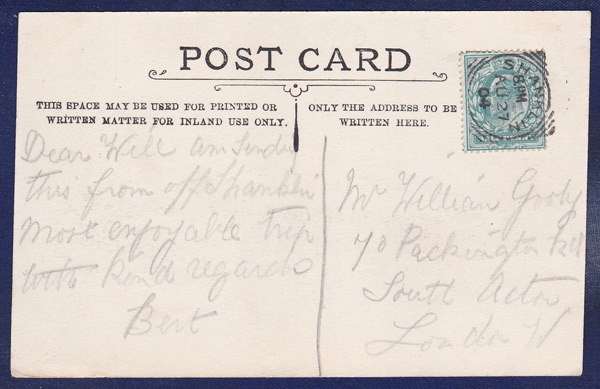 POST CARD
THIS SPACE MAY BE USED FOR PRINTED OR
WRITTEN MATTER FOR INLAND USE ONLY.
ONLY THE ADDRESS TO BE
WRITTEN HERE.
8 PM
AU 27
04
Dear Will am sending
this from off Shanklin
most enjoyable trip
with kind regards
Bert
Mr William
70 Packington Rd
South Acton
London W